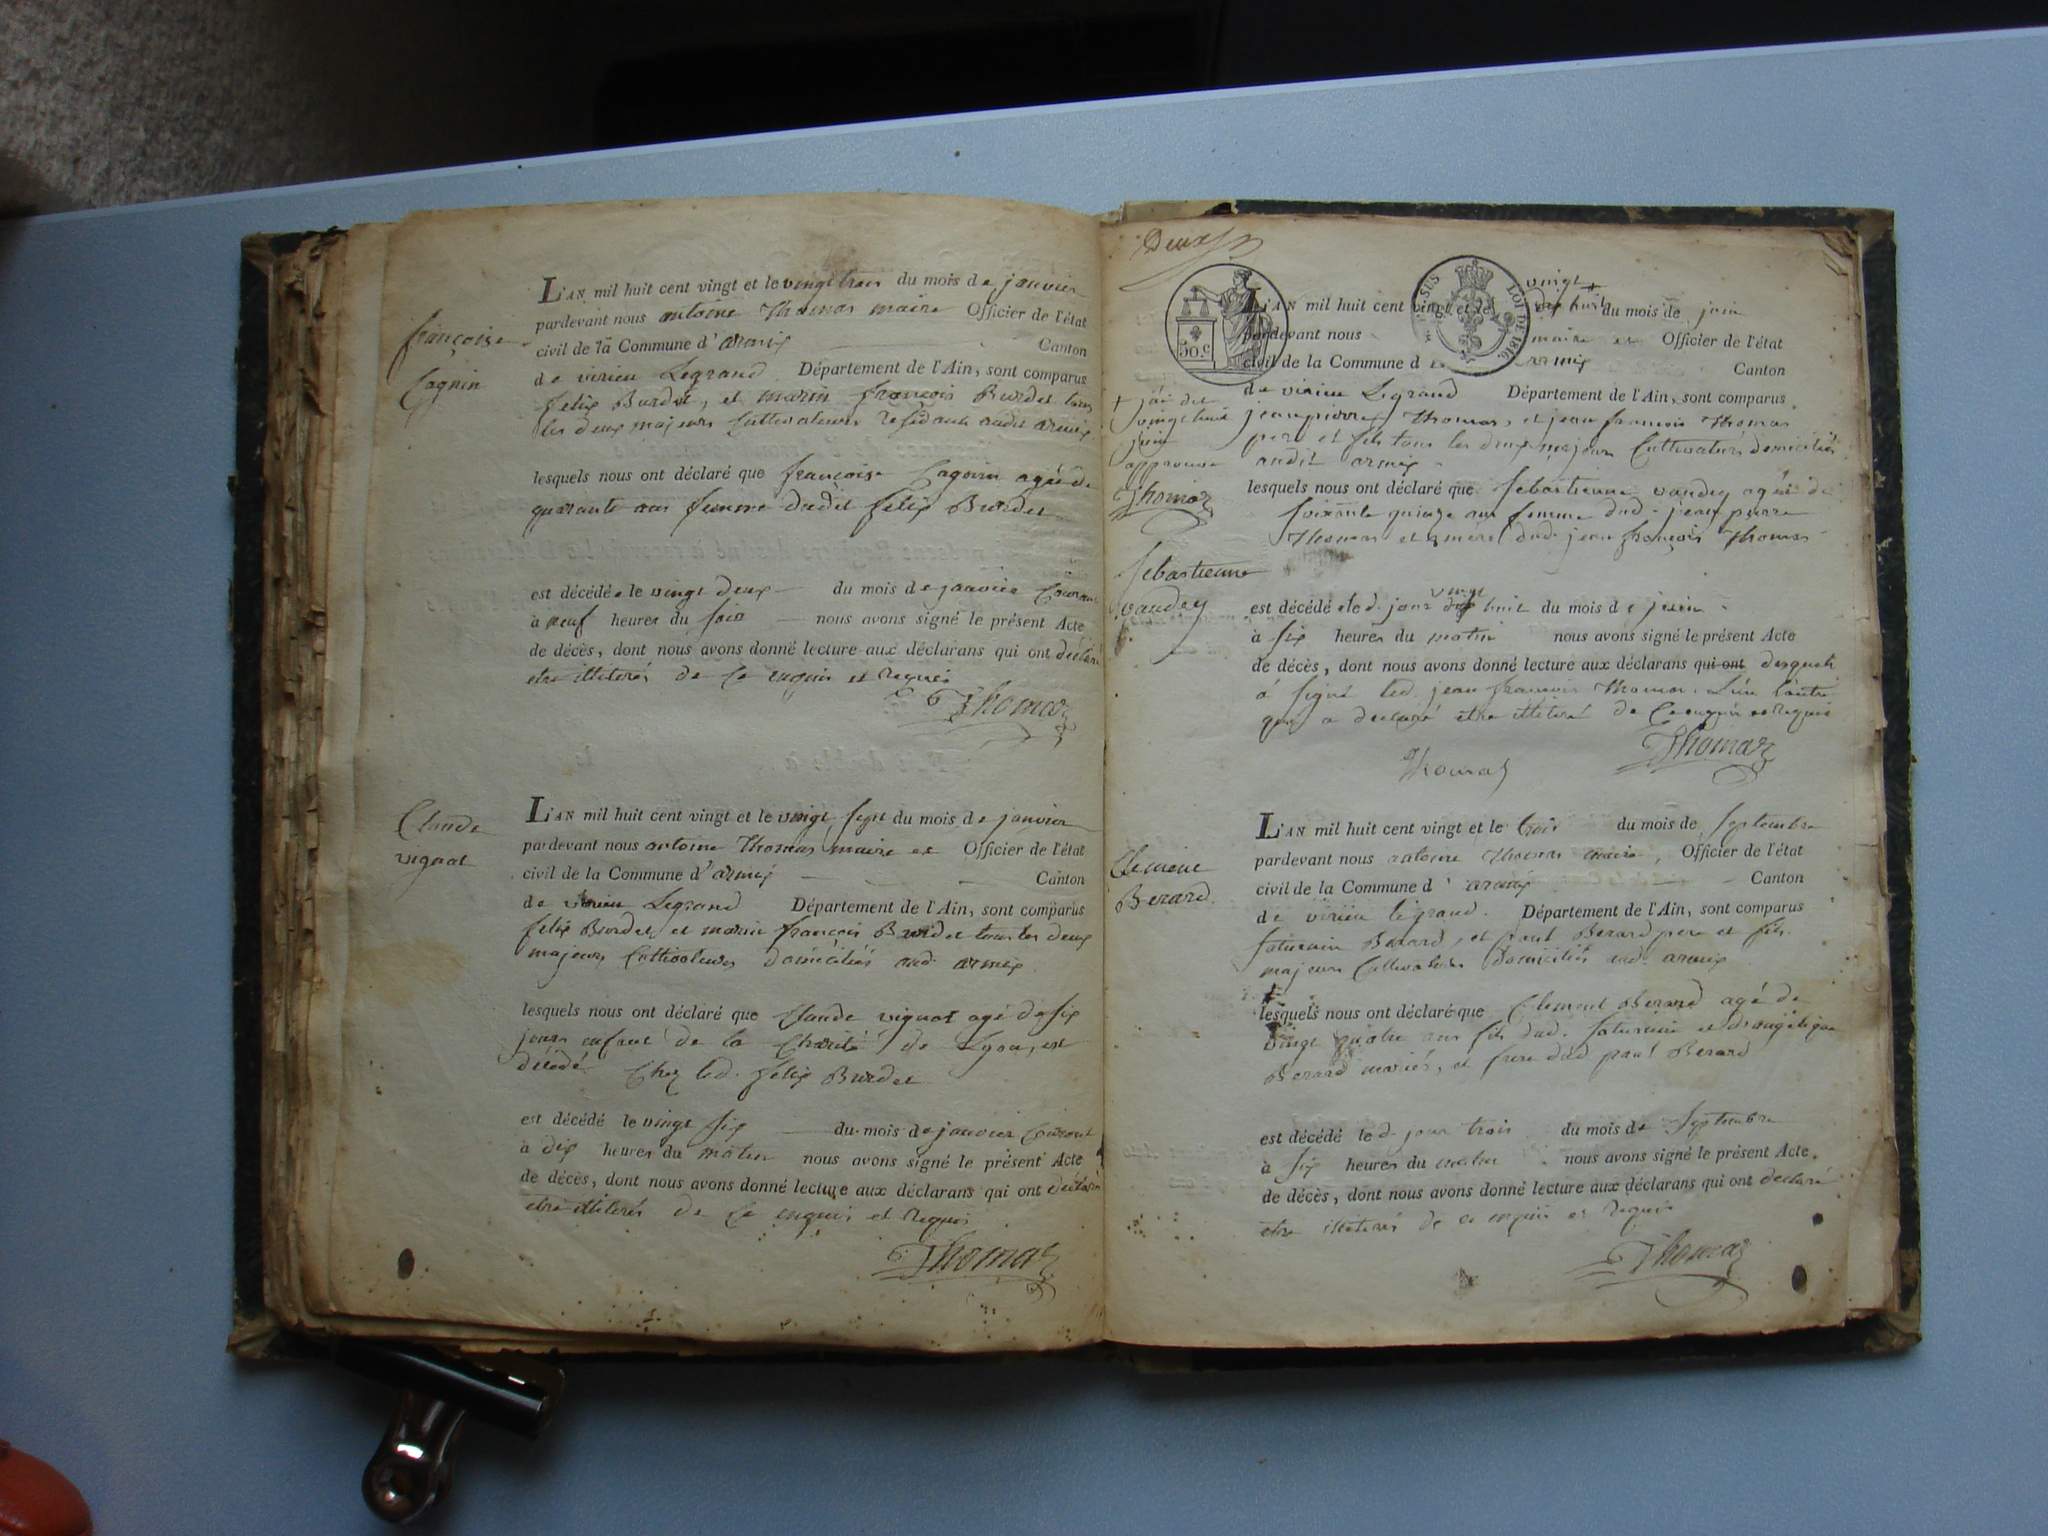 françoise
Cagnin
L'AN mil huit cent vingt et le vingt trois du mois de janvier
pardevant nous antoine Thomas maire Officier de l'état
civil de la Commune d'armix Canton
de virieu Legrand Département de l'Ain, sont comparus
felix Burdet, et marin françois Burdet tous
les deux majeurs Cultivateurs residants audit armix
lesquels nous ont déclaré que françoise Cagnin agée de
quarante ans femme dudit felix Burdet
est décédée le vingt deux du mois de janvier Courant
à neuf heures du soir nous avons signé le présent Acte
de décès, dont nous avons donné lecture aux déclarans qui ont déclaré
etre illiterés de Ce enquis et requis
Thomas
Claude
vignat
L'AN mil huit cent vingt et le vingt sept du mois de janvier
pardevant nous antoine Thomas maire et Officier de l'état
civil de la Commune d'armix Canton
de virieu Legrand Département de l'Ain, sont comparus
felix Burdet, et marin françois Burdet tous les deux
majeurs Cultivateurs domiciliés aud. armix
lesquels nous ont déclaré que Claude vignat agé de six
jours enfant de la Charité de Lyon, est
décédé Chez led. felix Burdet
est décédé le vingt six du mois de janvier Courant
à dix heures du matin nous avons signé le présent Acte
de décès, dont nous avons donné lecture aux déclarans qui ont déclaré
etre illiterés de Ce enquis et requis
Thomas
Deux
50.C
SUS LOI DE 1816.
vingt
L'AN mil huit cent vingt et le dix huit du mois de juin
pardevant nous maire et Officier de l'état
civil de la Commune d armix Canton
de virieu Legrand Département de l'Ain, sont comparus
jean pierre Thomas, et jean francois Thomas
pere et fils tous les deux majeurs Cultivateurs domiciliés
audit armix
+ j'ai dit
vingt huit
juin
approuvé
Thomas
lesquels nous ont déclaré que Sébastienne vandey agée de
soixante quinze ans femme dud. jean pierre
Thomas et mère dud. jean françois Thomas
Sebastienne
vandey
vingt
est décédée led. jour dix huit du mois de juin
à six heures du matin nous avons signé le présent Acte
de décès, dont nous avons donné lecture aux déclarans qui ont desquels
a signé led. jean francois Thomas. L'un l'autre
qui a declaré etre illiteré de Ce enquis et requis
Thomas
Thomas
Clement
Berard
L'AN mil huit cent vingt et le trois du mois de Septembre
pardevant nous antoine Thomas maire, Officier de l'état
civil de la Commune d' armix Canton
de virieu legrand. Département de l'Ain, sont comparus
saturnin Berard, et paul Berard pere et fils
majeurs Cultivateurs domiciliés aud. armix
lesquels nous ont déclaré que Clement Berard agé de
vingt quatre ans fils dud. saturnin et d'angélique
Berard mariés, et frere dud paul Berard
est décédé led. jour trois du mois de Septembre
à six heures du matin nous avons signé le présent Acte.
de décès, dont nous avons donné lecture aux déclarans qui ont declaré
etre illiterés de ce enquis et requis
Thomas